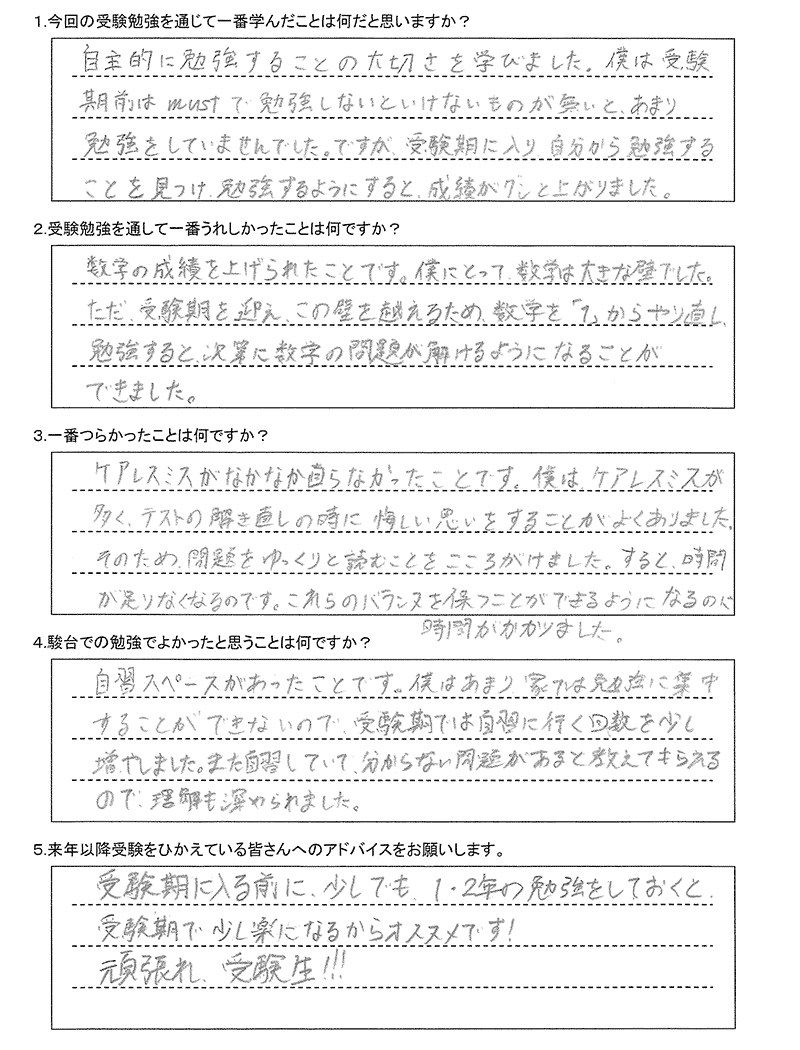 1.今回の受験勉強を通じて一番学んだことは何だと思いますか？
自主的に勉強することの大切さを学びました。僕は受験
期前はmustで勉強しないといけないものが無いと、あまり
勉強をしていませんでした。ですが、受験期に入り、自分から勉強する
ことを見つけ、勉強するようにすると、成績がグンと上がりました。
2.受験勉強を通して一番うれしかったことは何ですか？
数学の成績を上げられたことです。僕にとって、数学は大きな壁でした。
ただ、受験期を迎え、この壁を越えるため、数学を「1」からやり直し、
勉強すると、次第に数学の問題が解けるようになることが
できました。
3.一番つらかったことは何ですか？
ケアレスミスがなかなか直らなかったことです。僕は、ケアレスミスが
多く、テストの解き直しの時に悔しい思いをすることがよくありました。
そのため、問題をゆっくりと読むことをこころがけました。すると、時間
が足りなくなるのです。これらのバランスを保つことができるようになるのに
時間がかかりました。
4.駿台での勉強でよかったと思うことは何ですか？
自習スペースがあったことです。僕はあまり家では勉強に集中
することができないので、受験期では自習に行く回数を少し
増やしました。また自習していて、分からない問題があると教えてもらえる
ので、理解も深められました。
5.来年以降受験をひかえている皆さんへのアドバイスをお願いします。
受験期に入る前に、少しでも、1・2年の勉強をしておくと、
受験期で少し楽になるからオススメです!
頑張れ、受験生!!!